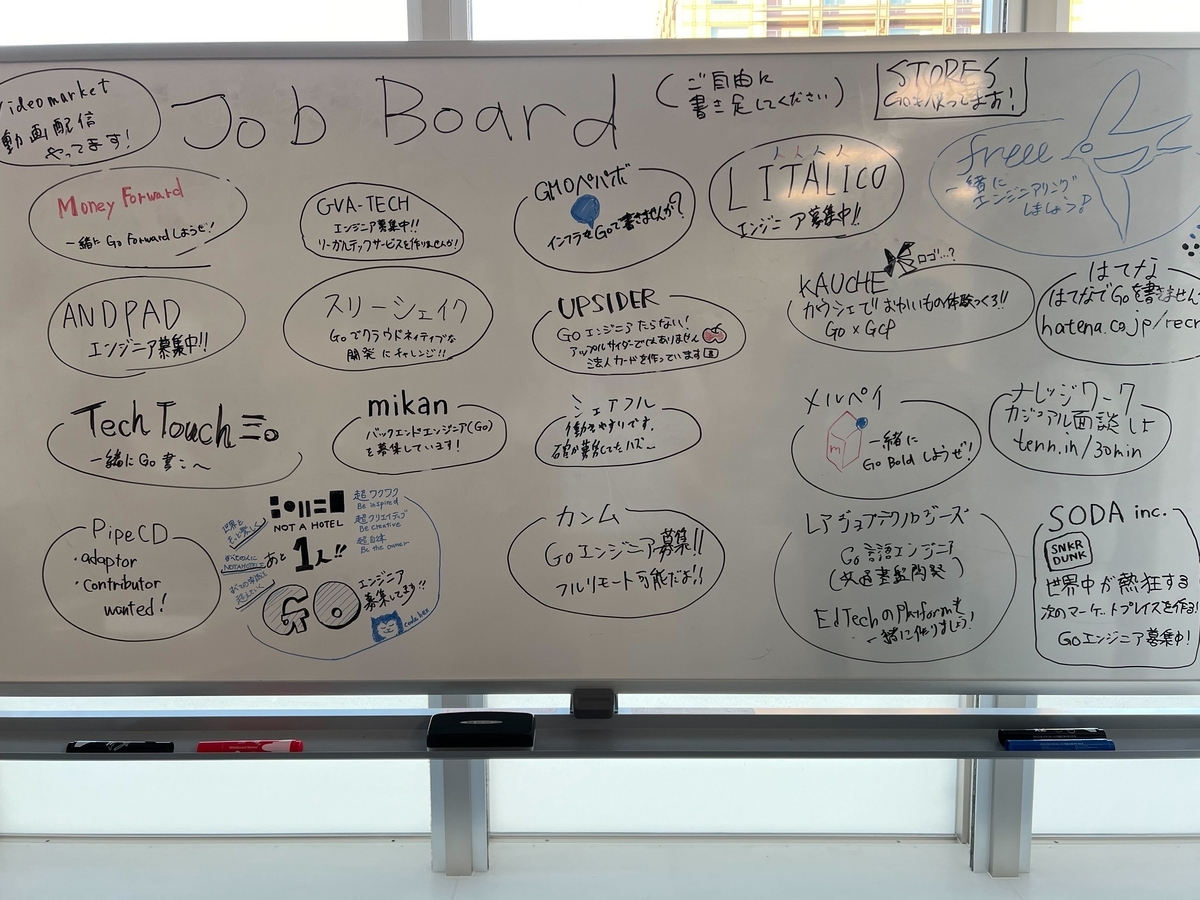 Job Board
(ご自由に
書き足してください)
videomarket
動画配信
やってます!
STORES
Goを使ってます!
Money Forward
一緒に Go Forward しようぜ!
GVA-TECH
エンジニア募集中!!
リーガルテックサービスを作りませんか!
GMOペパボ
インフラをGoで書きませんか?
LITALICO
エンジニア募集中!!
freee
一緒に
エンジニアリング
しましょう!
ANDPAD
エンジニア募集中!!
スリーシェイク
Goでクラウドネイティブな
開発にチャレンジ!!
UPSIDER
Goエンジニアたらない!
アップルサイダーではありません
法人カードを作っています
KAUCHE
ロゴ…?
カウシェでおかいもの体験つくろ!!
Go × GCP
はてな
はてなでGoを書きません
hatena.co.jp/recr
Tech Touch
一緒にGo書こへ
mikan
バックエンドエンジニア(Go)
を募集しています!
シェアフル
働きやすいです。
メルペイ
m
一緒に
Go Bold しようぜ!
ナレッジワーク
カジュアル面談しよ
tenn.in/30min
PipeCD
・adaptor
・contributor
wanted!
NOT A HOTEL
超ワクワク
Be inspired
超クリエイティブ
Be creative
超自律
Be the owner
世界を
もっと楽しく
すべての人に
NOT A HOTELを
あと
1人!!
GO
エンジニア
募集してます!!
カンム
Goエンジニア募集!!
フルリモート可能だよ!!
レアジョブテクノロジーズ
Go言語エンジニア
(共通基盤開発)
EdTechのPlatformを
一緒に作りましょう!
SODA inc.
SNKR
DUNK
世界中が熱狂する
次のマーケットプレイスを作る!
Goエンジニア募集中!